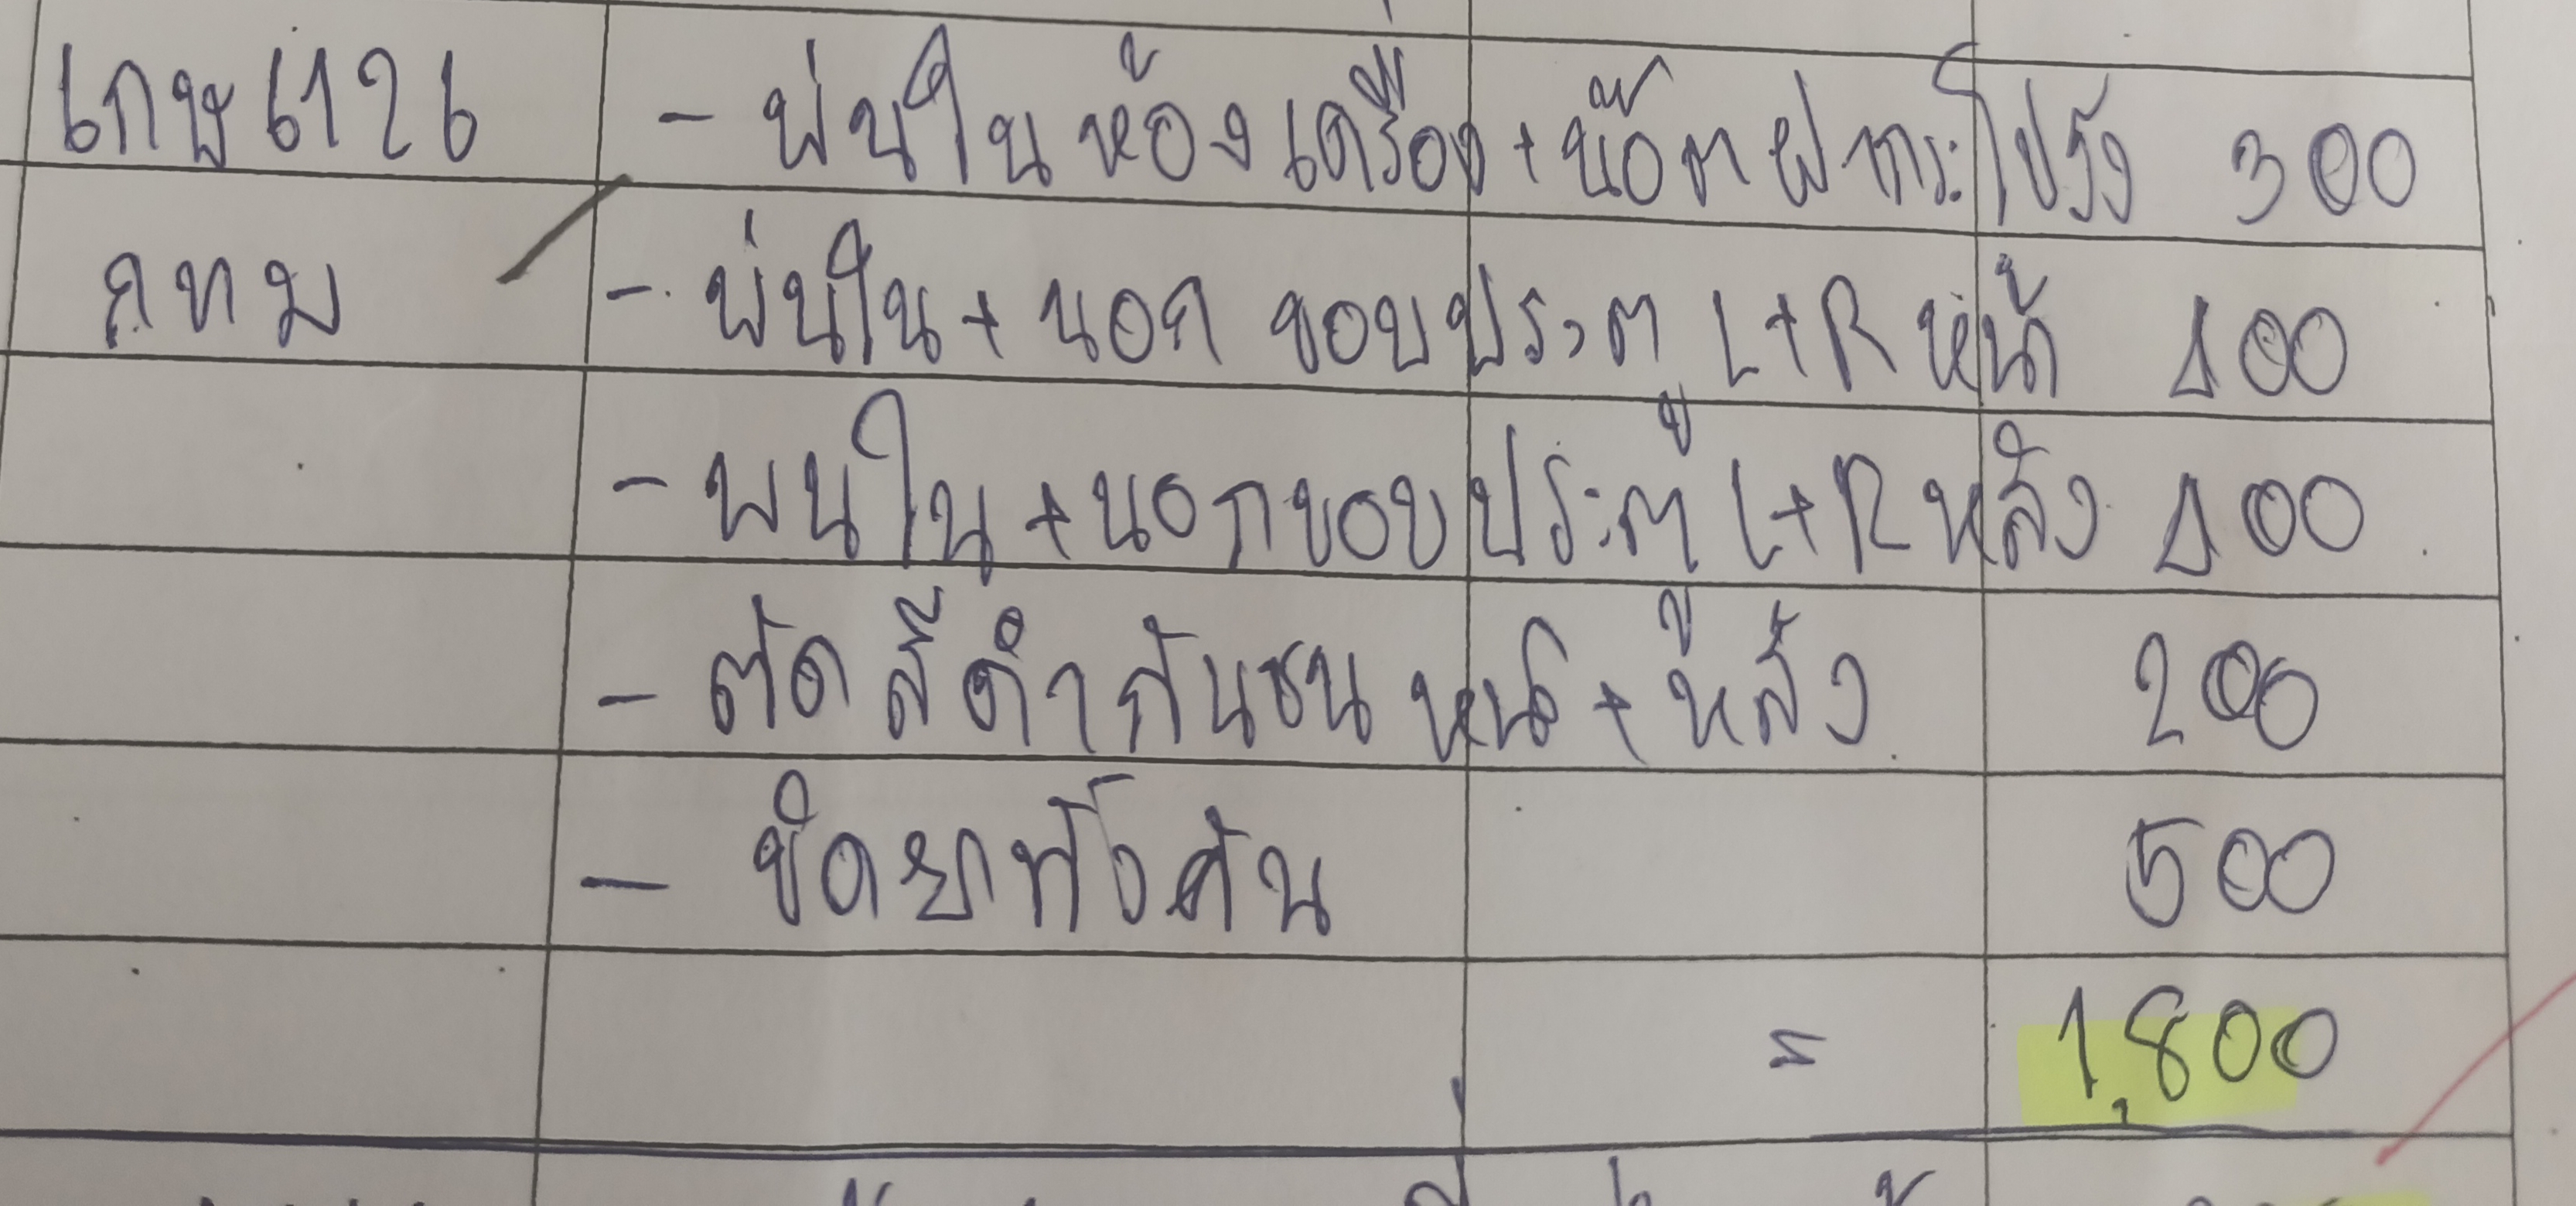 เกษ 6126 - พ่นในห้องเครื่อง+น๊อตฝากระโปรง 300
กทม - พ่นใน+นอก ขอบประตู L+R หน้า 400
- พ่นใน+นอกขอบประตู L+R หลัง 400
- ตัดสีดำกันชน หน้า+หลัง 200
- ขัดยาทั้งคัน 500
= 1,800